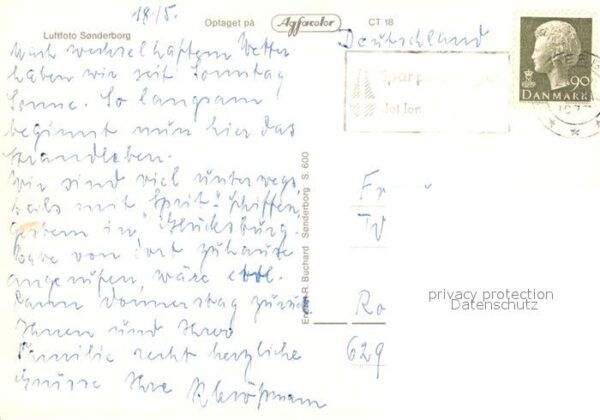 18./5.
Optaget på Agfacolor CT 18
Luftfoto Sønderborg
Deutschland
90
DANMARK
Nach wechselhaftem Wetter
haben wir seit Sonntag
Sonne. So langsam
beginnt nun hier das
Strandleben.
Wir sind viel unterwegs
teils mit "Sprit"schiffen
gestern in Glücksburg.
Habe von dort zuhause
angerufen, wäre evtl.
kann Donnerstag zurück
Ihnen und Ihrer
Familie recht herzliche
Grüsse Ihre
Eneret R. Buchard Sønderborg S. 600
Fr
Ro
629
privacy protection
Datenschutz